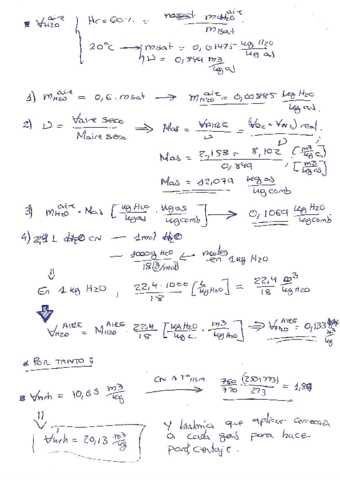 ∀H2O aire { Hr = 60% = m aire H2O / msat
20°C → msat = 0,01475 kg H2O / kg as
υ = 0,849 m3 / kg as
1) m aire H2O = 0,6 · msat → m aire H2O = 0,00885 kg H2O / kg as
2) υ = Vaire seco / Maire seco ⟹ Mas = ∀AIRE / υ = (∀O2 + ∀N2) real / υ
Mas = 2,153 + 8,102 / 0,849 [m3/kg c] / [m3/kg as]
Mas = 12,079 kg as / kg comb
3) m aire H2O · Mas [kg H2O / kg as · kg as / kg comb] → 0,1069 kg H2O / kg comb
4) L CN — 1 mol
— 1000 g H2O / 18 (g/mol) ← moles en 1 kg H2O
En 1 kg H2O, 22,4 · 1000 / 18 [L / kg H2O] = 22,4 / 18 m3 / kg H2O
∀ AIRE H2O = M AIRE H2O · 22,4 / 18 [kg H2O / kg c. · m3 / kg H2O] ⟹ ∀ AIRE H2O = 0,133 m3 / kg
* POR TANTO:
* ∀nrh = 10,65 m3 / kg CN a Tª HUM → 760 / 770 (250+273) / 273 = 1,89
∀nrh = 20,13 m3 / kg
Y habría que aplicar corrección
a cada gas para hacer
porcentaje.